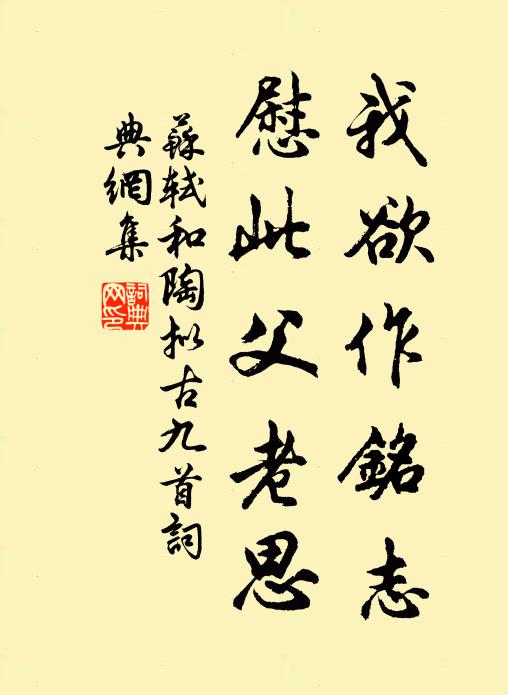 我欲作銘志
慰此父老思
蘇軾和陶拟古九首詞
典網集
詞典网印